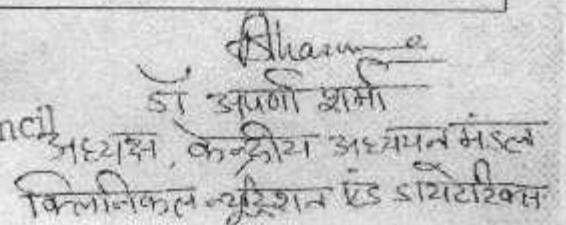 Sharma
डॉ अपर्णा शर्मा
ncil
अध्यक्ष, केन्द्रीय अध्ययन मंडल
क्लिनिकल न्यूट्रिशन एंड डायटेटिक्स